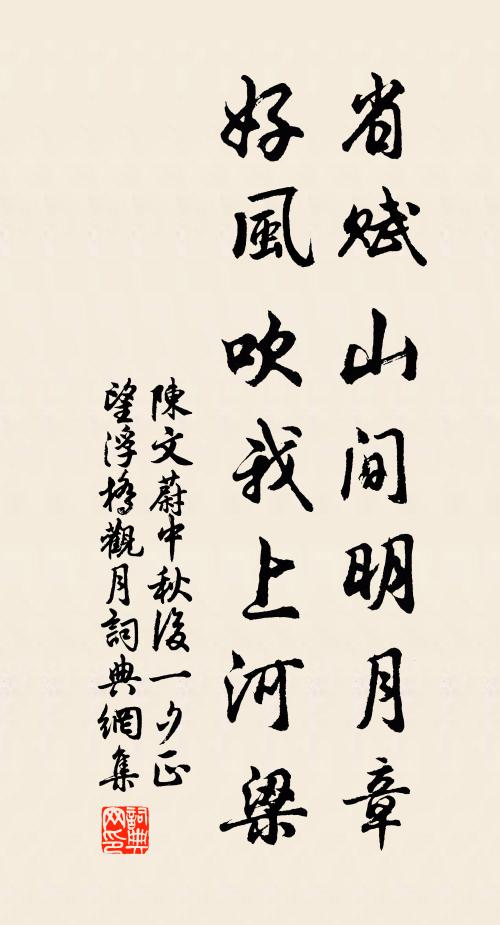 省賦山間明月章
好風吹我上河梁
陳文蔚中秋後一夕正
望浮橋觀月詞典網集
詞典
网印